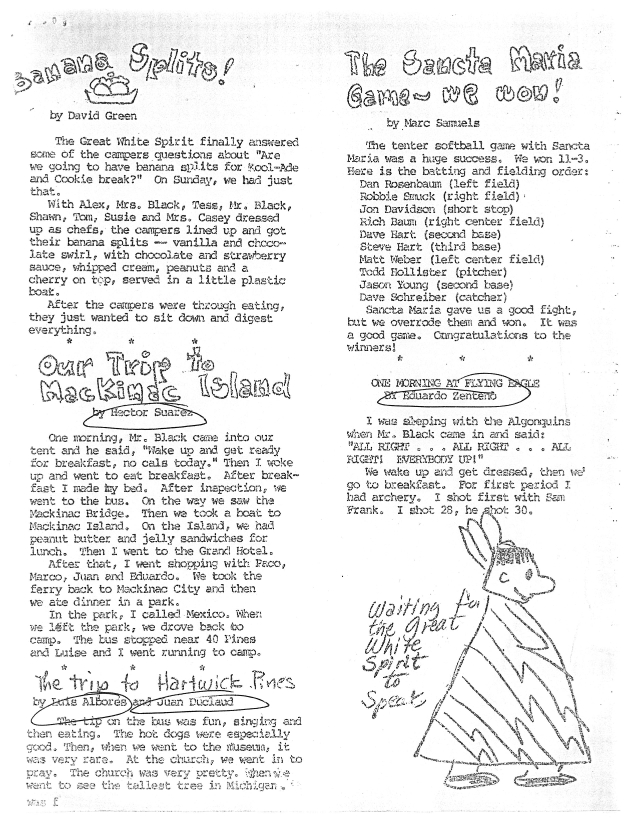 Banana Splits!
by David Green
The Great White Spirit finally answered
some of the campers questions about "Are
we going to have banana splits for Kool-Ade
and Cookie break?" On Sunday, we had just
that.
With Alex, Mrs. Black, Tess, Mr. Black,
Shawn, Tom, Susie and Mrs. Casey dressed
up as chefs, the campers lined up and got
their banana splits -- vanilla and choco-
late swirl, with chocolate and strawberry
sauce, whipped cream, peanuts and a
cherry on top, served in a little plastic
boat.
After the campers were through eating,
they just wanted to sit down and digest
everything.
* * *
Our Trip to
Mackinac Island
by Hector Suarez
One morning, Mr. Black came into our
tent and he said, "Wake up and get ready
for breakfast, no cals today." Then I woke
up and went to eat breakfast. After break-
fast I made my bed. After inspection, we
went to the bus. On the way we saw the
Mackinac Bridge. Then we took a boat to
Mackinac Island. On the Island, we had
peanut butter and jelly sandwiches for
lunch. Then I went to the Grand Hotel.
After that, I went shopping with Paco,
Marco, Juan and Eduardo. We took the
ferry back to Mackinac City and then
we ate dinner in a park.
In the park, I called Mexico. When
we left the park, we drove back to
camp. The bus stopped near 40 Pines
and Luise and I went running to camp.
* * *
The trip to Hartwick Pines
by Luis Albores and Juan Duclaud
The tip on the bus was fun, singing and
then eating. The hot dogs were especially
good. Then, when we went to the museum, it
was very rare. At the church, we went in to
pray. The church was very pretty. When we
went to see the tallest tree in Michigan.
was
The Sancta Maria
Game~ we won!
by Marc Samuels
The tenter softball game with Sancta
Maria was a huge success. We won 11-3.
Here is the batting and fielding order:
Dan Rosenbaum (left field)
Robbie Smuck (right field)
Jon Davidson (short stop)
Rich Baum (right center field)
Dave Hart (second base)
Steve Hart (third base)
Matt Weber (left center field)
Todd Hollister (pitcher)
Jason Young (second base)
Dave Schreiber (catcher)
Sancta Maria gave us a good fight,
but we overrode them and won. It was
a good game. Congratulations to the
winners!
* * *
ONE MORNING AT FLYING EAGLE
BY Eduardo Zenteno
I was sleping with the Algonquins
when Mr. Black came in and said:
"ALL RIGHT . . . ALL RIGHT . . . ALL
RIGHT! EVERYBODY UP!"
We wake up and get dressed, then we
go to breakfast. For first period I
had archery. I shot first with Sam
Frank. I shot 28, he shot 30.
Waiting for
the Great
White
Spirit
to
Speak